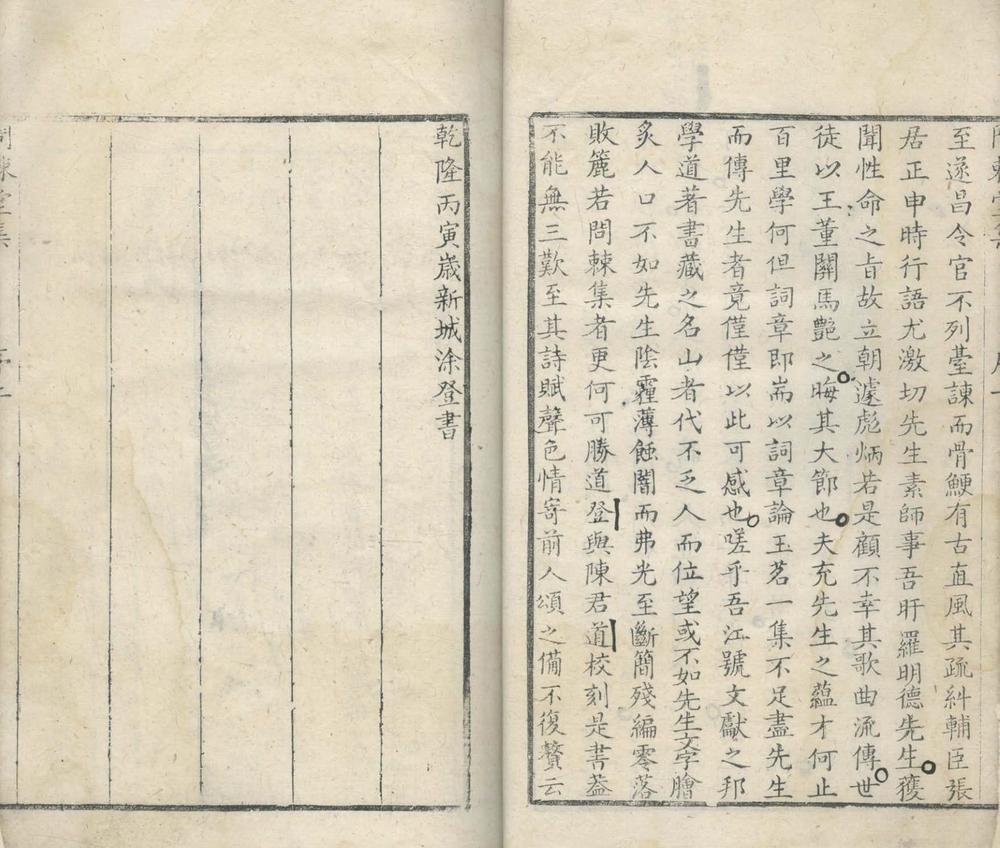 至遂昌令官不列臺諫而骨鯁有古直風其疏糾輔臣張
居正申時行語尤激切先生素師事吾旴羅明德先生獲
聞性命之旨故立朝遽彪炳若是顧不幸其歌曲流傳世
徒以王董關馬艷之晦其大節也夫充先生之蘊才何止
百里學何但詞章即耑以詞章論玉茗一集不足盡先生
而傳先生者竟僅僅以此可感也嗟乎吾江號文獻之邦
學道著書藏之名山者代不乏人而位望或不如先生文字膾
炙人口不如先生陰霾薄蝕闇而弗光至斷簡殘編零落
敗簏若問棘集者更何可勝道登與陳君道校刻是書葢
不能無三歎至其詩賦聲色情寄前人頌之備不復贅云
乾隆丙寅歲新城涂登書